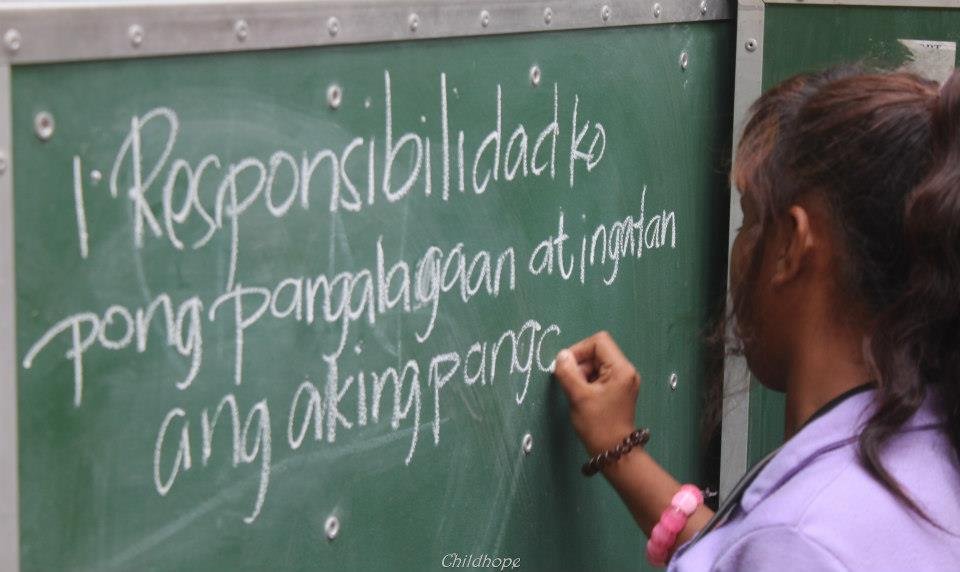 1. Responsibilidad ko
pong pangalagaan at ingatan
ang aking panga
Childhope